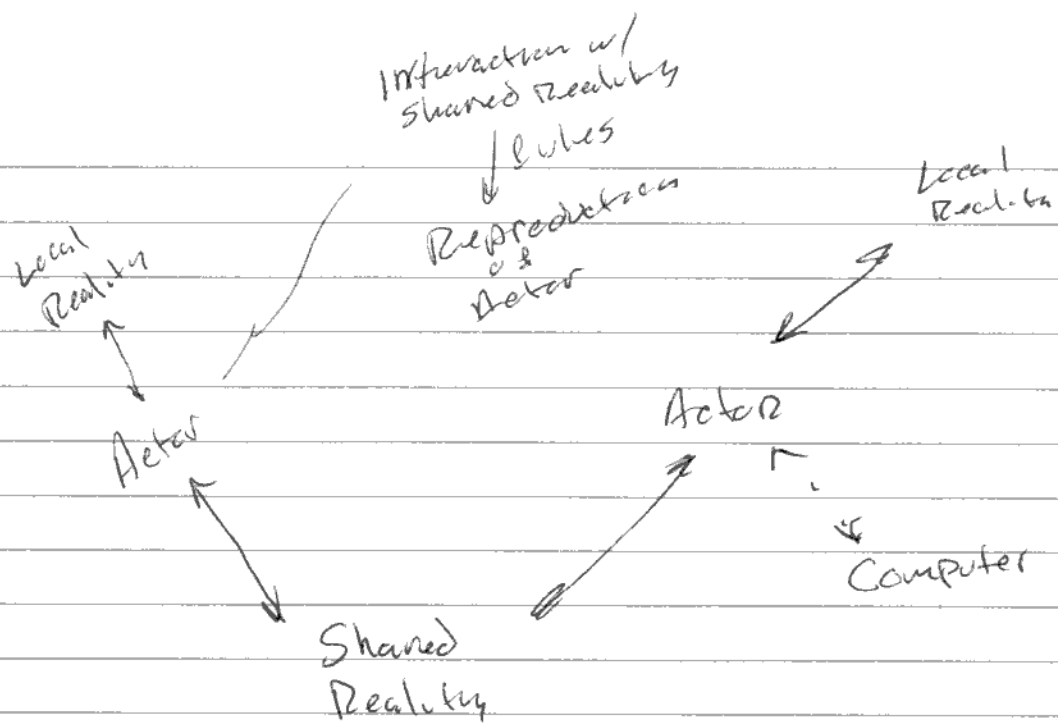 Interaction w/
Shared Reality
Rules
Reproduction
of
Actor
Local
Reality
Local
Reality
Actor
Actor
Computer
Shared
Reality